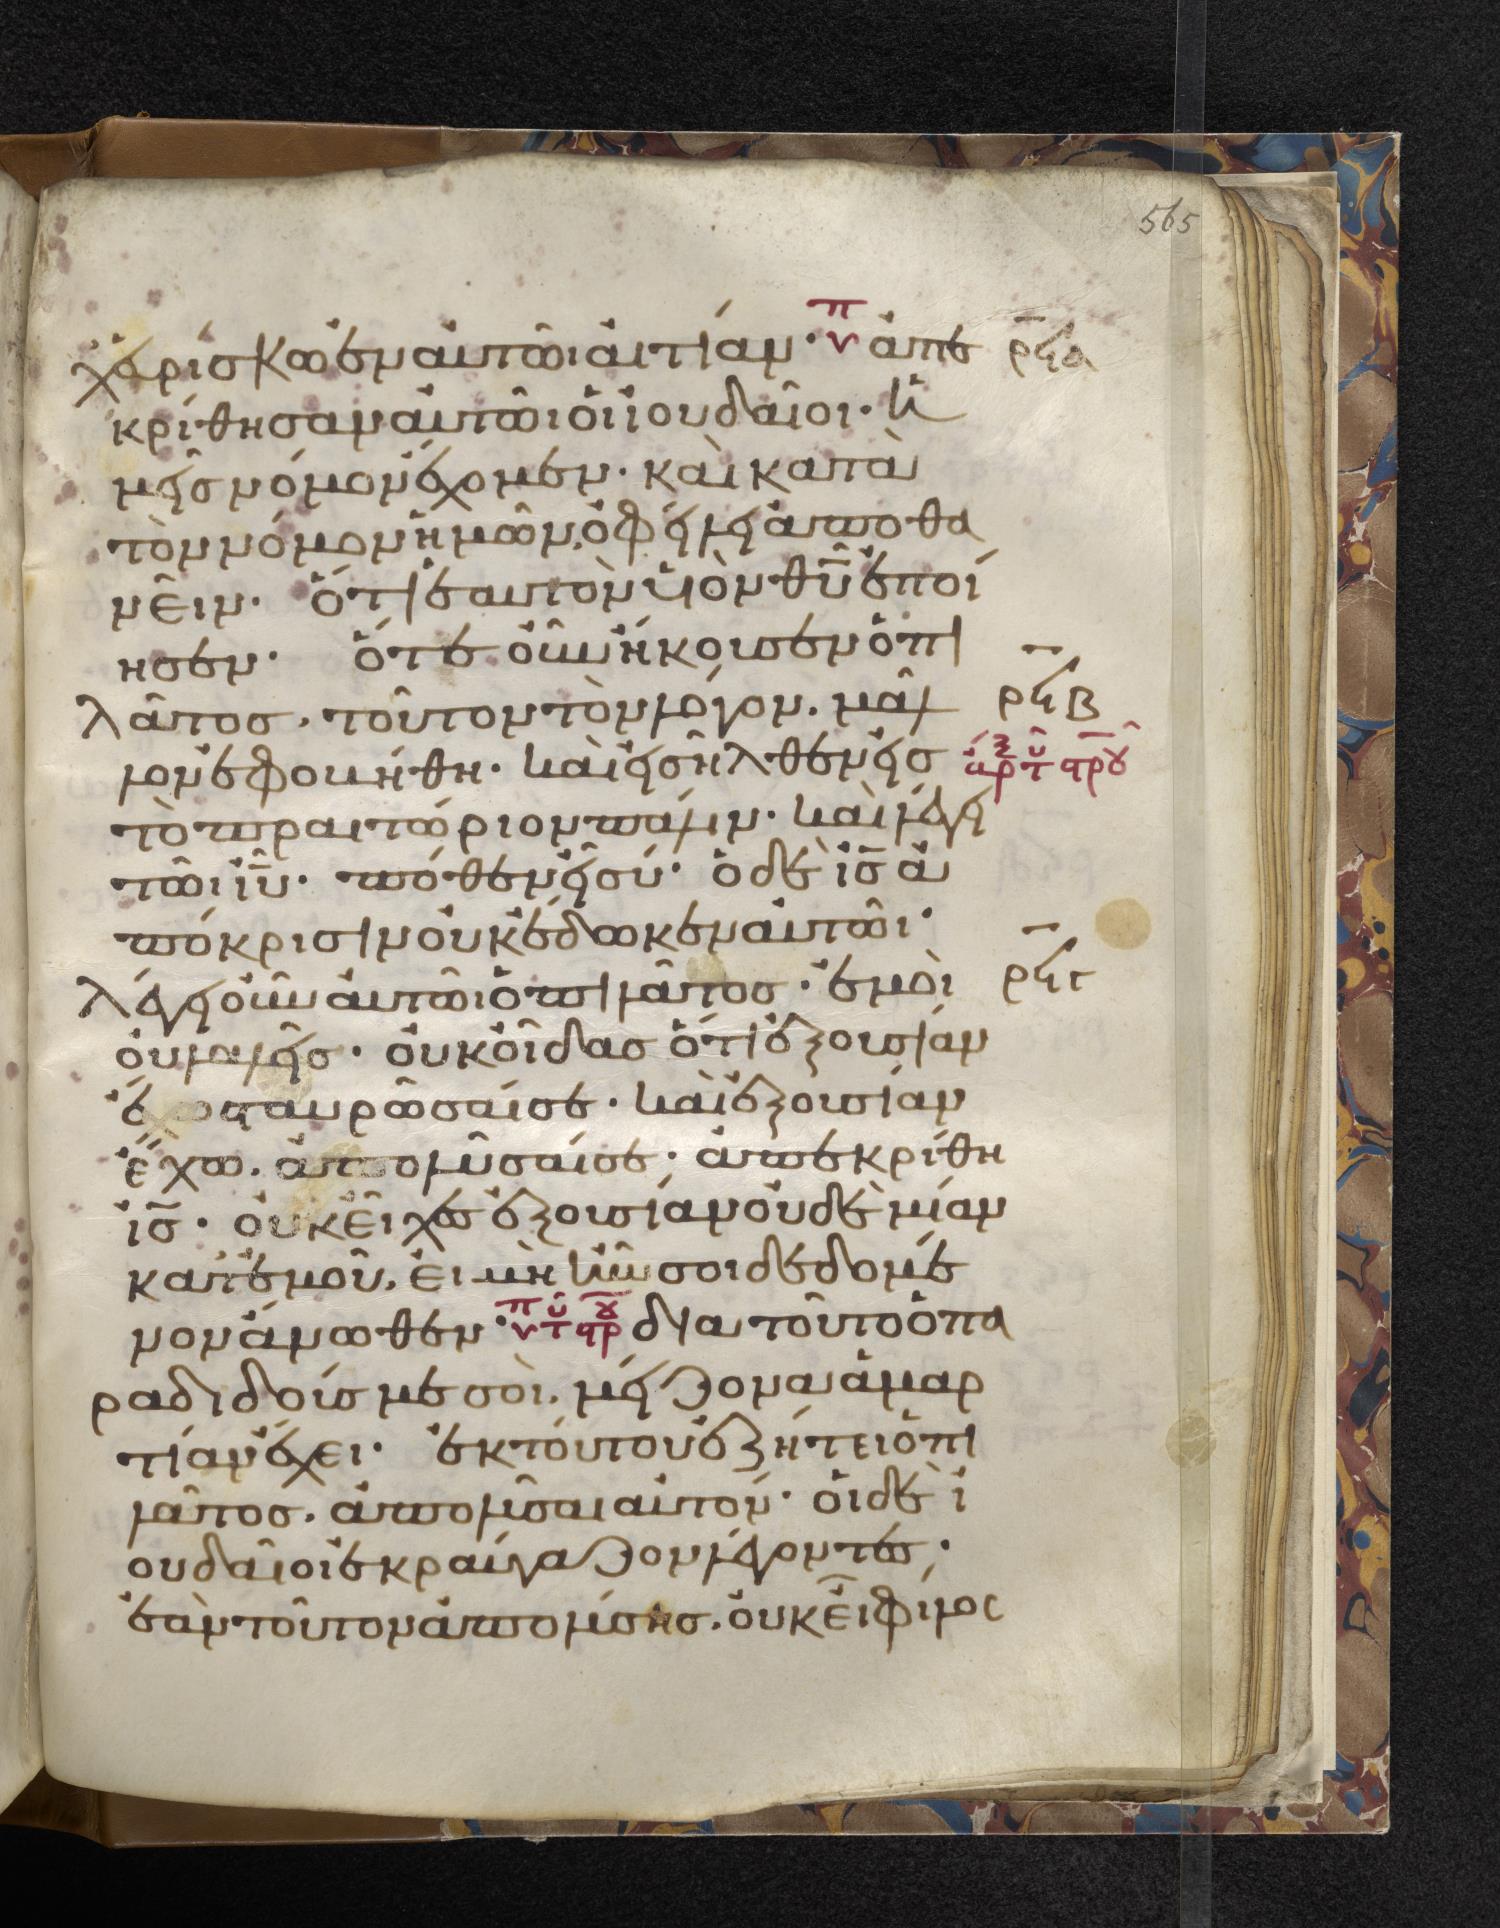 565
χευρίσκω ἐν αὐτῶι αἰτίαν· ἀπε
κρίθησαν αὐτῶι οἱ ἰουδαῖοι· ἡ
μεῖς νόμον ἔχομεν· καὶ κατὰ
τὸν νόμον ἡμῶν, ὀφείλει ἀποθα
νεῖν· ὅτι ἑαυτὸν υἱὸν θῦ ἐποί
ησεν· ὅτε οὖν ἤκουσεν ὁ πι
λᾶτος, τοῦτον τὸν λόγον, μᾶλ
λον ἐφοβήθη· καὶ εἰσῆλθεν εἰς
τὸ πραιτώριον πάλιν· καὶ λέγει
τῶι ἰῦ· πόθεν εἶ σύ· ὁ δὲ ἰς ἀ
πόκρισιν οὐκ ἔδωκεν αὐτῶι·
λέγει οὖν αὐτῶι ὁ πιλᾶτος· ἐμοὶ
οὐ λαλεῖς· οὐκ οἶδας ὅτι ἐξουσίαν
ἔχω σταυρῶσαί σε· καὶ ἐξουσίαν
ἔχω. ἀπολῦσαί σε· ἀπεκρίθη
ἰς· οὐκ εἶχες ἐξουσίαν οὐδὲ μίαν
κατ ἐμοῦ, εἰ μὴ ἦν σοι δεδομέ
νον ἄνωθεν· διὰ τοῦτο ὁ πα
ραδιδούς με σοὶ, μείζονα ἁμαρ
τίαν ἔχει· ἐκ τούτου ἐζήτει ὁ πι
λᾶτος, ἀπολῦσαι αὐτόν· οἱ δὲ ἰ
ουδαῖοι ἐκραύγαζον λέγοντες·
ἐὰν τοῦτον ἀπολύσης, οὐκ εἶ φίλος